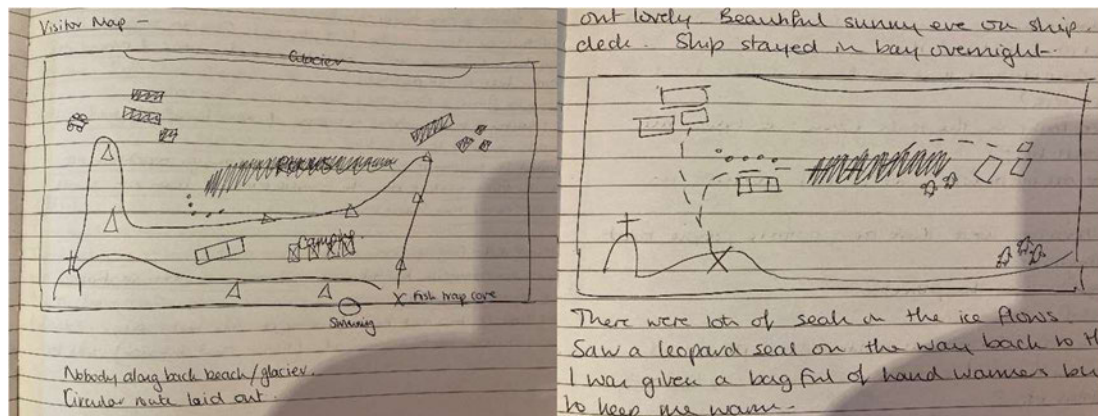 Visitor Map -
Glacier
ROCKS
camping
X Fish trap cove
Swimming
Nobody along back beach/glacier.
Circular route laid out.
out lovely. Beautiful sunny eve on ship
deck. Ship stayed in bay overnight.
There were lots of seals on the ice flows.
Saw a leopard seal on the way back to th
I was given a bag full of hand warmers
to keep me warm.